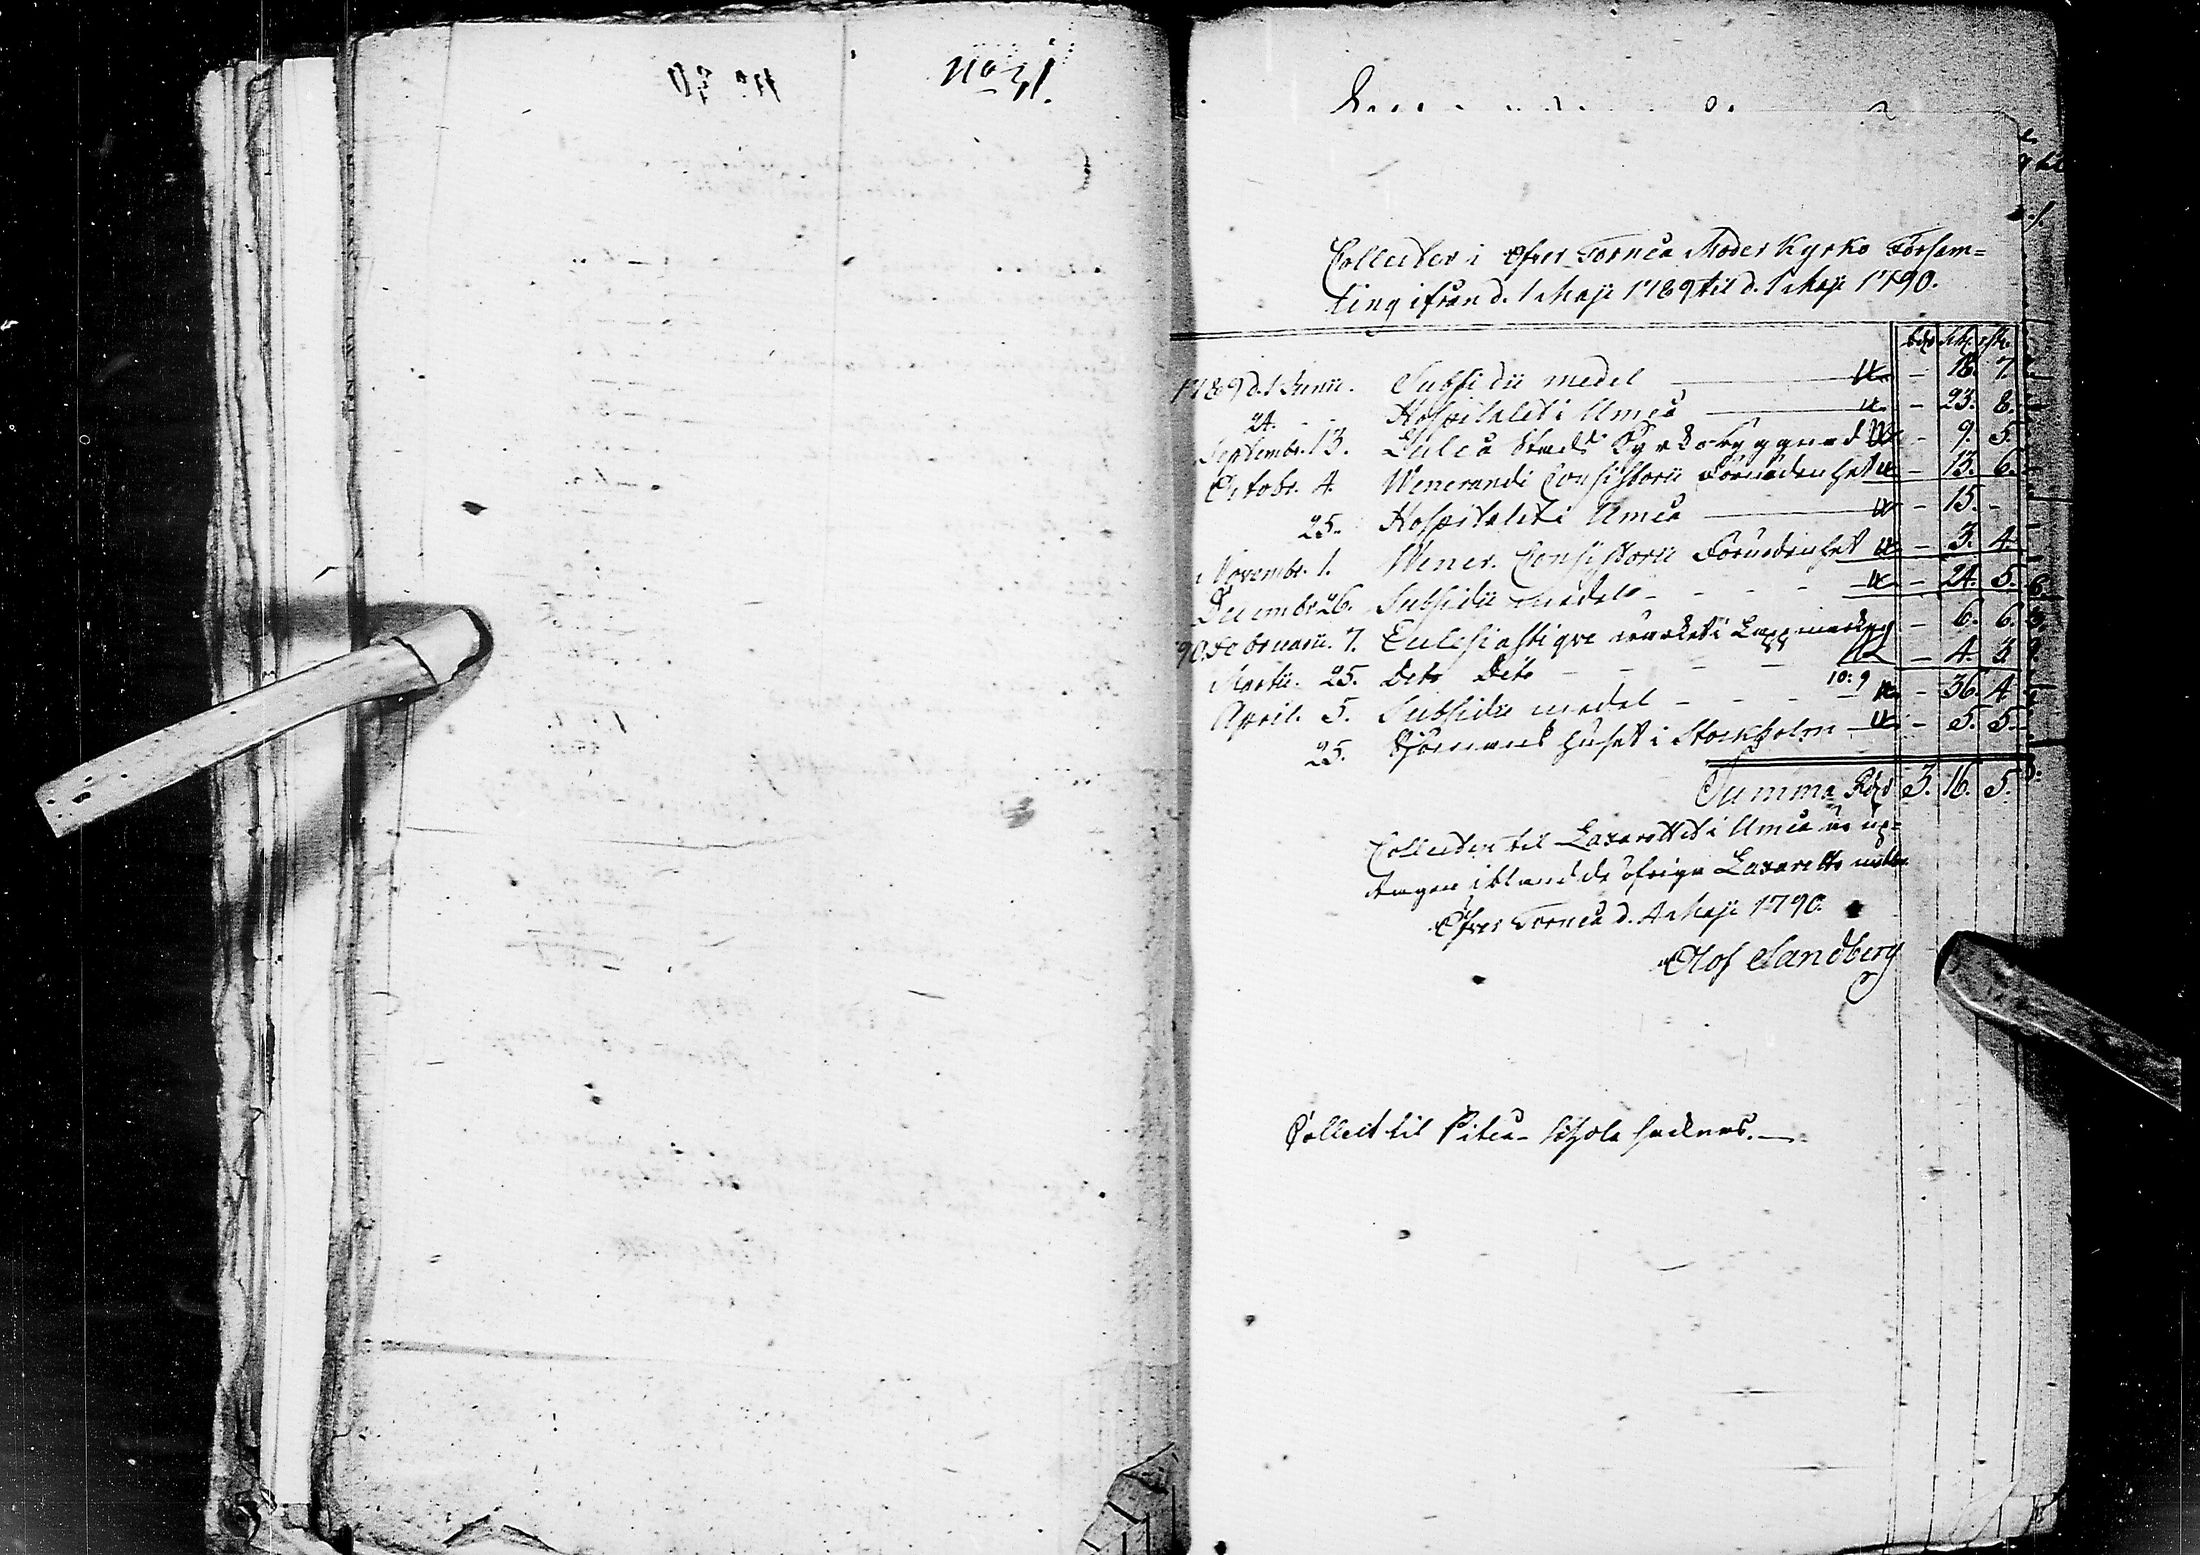 No 41.
Collecter i Öfver Torneå Moder Kyrko Försam=
ling ifrån d. 1 Maji 1789 til d. 1 Maji 1790.
Rdr sk. rst.
1789 d. 1 Junii. Subsidii medel - 18. 7.
24. - Hospitalet i Umeå - 23. 8.
Septembr. 13. Luleå Stads Kyrkobyggnad - 9. 5.
Octobr. 4. Venerandi Consistorii Förnödenhet - 13. 6.
25. Hospitalet i Umeå - 15. -
Novembr. 1. Vener. Consistorii Förnödenhet - 3. 4.
Decembr 26. Subsidii medel - 24. 5.
90. Februarii. 7. Ecclesiastique wärket i Lappmarken - 6. 6.
Martii. 25. Dito Dito - 4. 3
10: 9
April. 5. Subsidii medel - 36. 4
25. Sjömans huset i Stockholm - 5. 5.
Summa Rdr 3. 16. 5.
Collecten til Lazarettet i Umeå är up=
tagen ibland de öfriga Lazaretts medlen
Öfver Torneå d. 4 Maji 1790.
Olof Sandberg
Collect til Piteå Schola saknas.